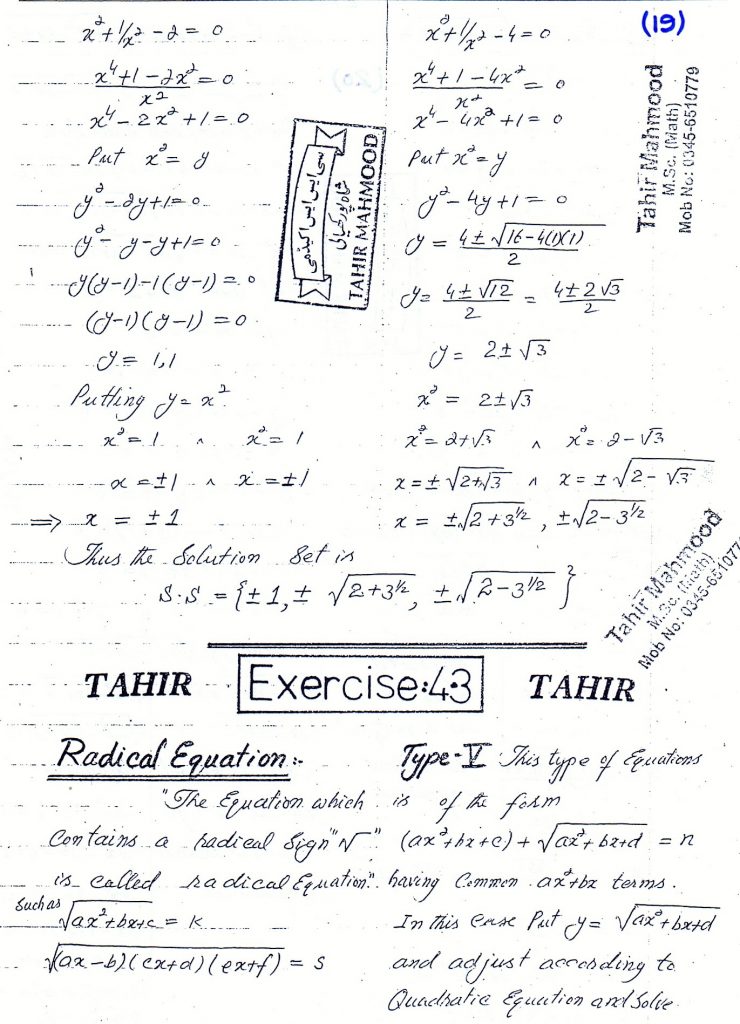 x²+1/x²-2 = 0
(x⁴+1-2x²)/x² = 0
x⁴-2x²+1=0
Put x²=y
y²-2y+1=0
y²-y-y+1=0
y(y-1)-1(y-1)=0
(y-1)(y-1)=0
y=1,1
Putting y=x²
x²=1 ∧ x²=1
x=±1 ∧ x=±1
⇒ x = ±1
x²+1/x²-4=0
(x⁴+1-4x²)/x² = 0
x⁴-4x²+1=0
Put x²=y
y²-4y+1=0
y = (4±√(16-4(1)(1)))/2
y = (4±√12)/2 = (4±2√3)/2
y = 2±√3
x² = 2±√3
x²=2+√3 ∧ x²=2-√3
x=±√(2+√3) ∧ x=±√(2-√3)
x = ±√(2+3^½), ±√(2-3^½)
Thus the Solution Set is
S.S = {±1, ±√(2+3^½), ±√(2-3^½)}
(19)
Tahir Mahmood
M.Sc. (Math)
Mob No: 0345-6510779
سی ایس ایس اکیڈمی
شاہ پور کمیالی
TAHIR MAHMOOD
Tahir Mahmood
M.Sc. (Math)
Mob No: 0345-651077
TAHIR Exercise:4.3 TAHIR
Radical Equation:-
"The Equation which
Contains a radical Sign "√"
is called radical Equation".
Such as √(ax²+bx+c) = k
√((ax-b)(cx+d)(ex+f)) = s
Type-V This type of Equations
is of the form
(ax²+bx+c)+√(ax²+bx+d) = n
having Common ax²+bx terms.
In this Case Put y=√(ax²+bx+d)
and adjust according to
Quadratic Equation and Solve